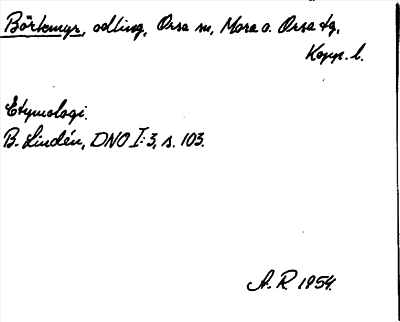 Börtemyr, odling, Orsa sn, Mora o. Orsa tg,
Kopp. l.
Etymologi.
B. Lindén, DNO I:3, s. 103.
A. R 1954.